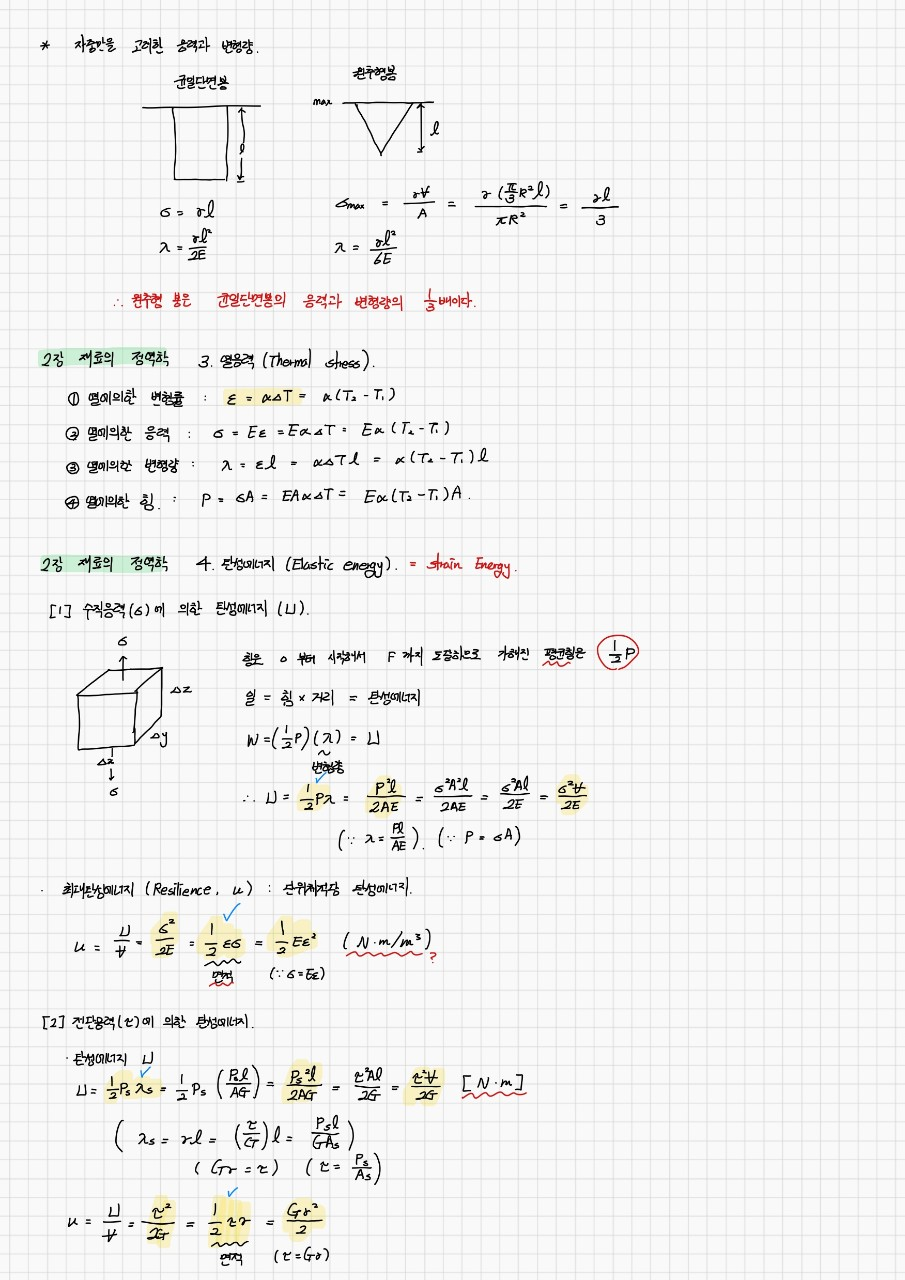 * 자중만을 고려한 응력과 변형량.
균일단면봉 원추형봉
max
l l
σ = γl σmax = γV/A = γ(π/3 R²l)/πR² = γl/3
λ = γl²/2E λ = γl²/6E
∴ 원추형 봉은 균일단면봉의 응력과 변형량의 1/3배이다.
2장 재료의 정역학 3. 열응력 (Thermal stress).
① 열에의한 변형률 : ε = α△T = α(T₂-T₁)
② 열에의한 응력 : σ = Eε = Eα△T = Eα(T₂-T₁)
③ 열에의한 변형량 : λ = εl = α△Tl = α(T₂-T₁)l
④ 열에의한 힘. : P = σA = EAα△T = Eα(T₂-T₁)A.
2장 재료의 정역학 4. 탄성에너지 (Elastic energy). = strain Energy.
[1] 수직응력(σ)에 의한 탄성에너지 (U).
σ
△z
△y
△x
σ
힘은 0 부터 시작해서 F 까지 도달하므로 가해진 평균힘은 1/2 P
일 = 힘 × 거리 = 탄성에너지
W = (1/2 P)(λ) = U
변형량
∴ U = 1/2 Pλ = P²l/2AE = σ²A²l/2AE = σ²Al/2E = σ²V/2E
(∵ λ = Pl/AE). (∵ P = σA)
· 최대탄성에너지 (Resilience, u) : 단위체적당 탄성에너지.
u = U/V = σ²/2E = 1/2 εσ = 1/2 Eε² (N·m/m³)?
면적 (∵ σ=Eε)
[2] 전단응력(τ)에 의한 탄성에너지.
· 탄성에너지 U
U = 1/2 Ps λs = 1/2 Ps (Psl/AG) = Ps²l/2AG = τ²Al/2G = τ²V/2G [N·m]
(λs = γl = (τ/G)l = Psl/GAs)
(Gγ = τ) (τ = Ps/As)
u = U/V = τ²/2G = 1/2 τγ = Gγ²/2
면적 (τ=Gγ)